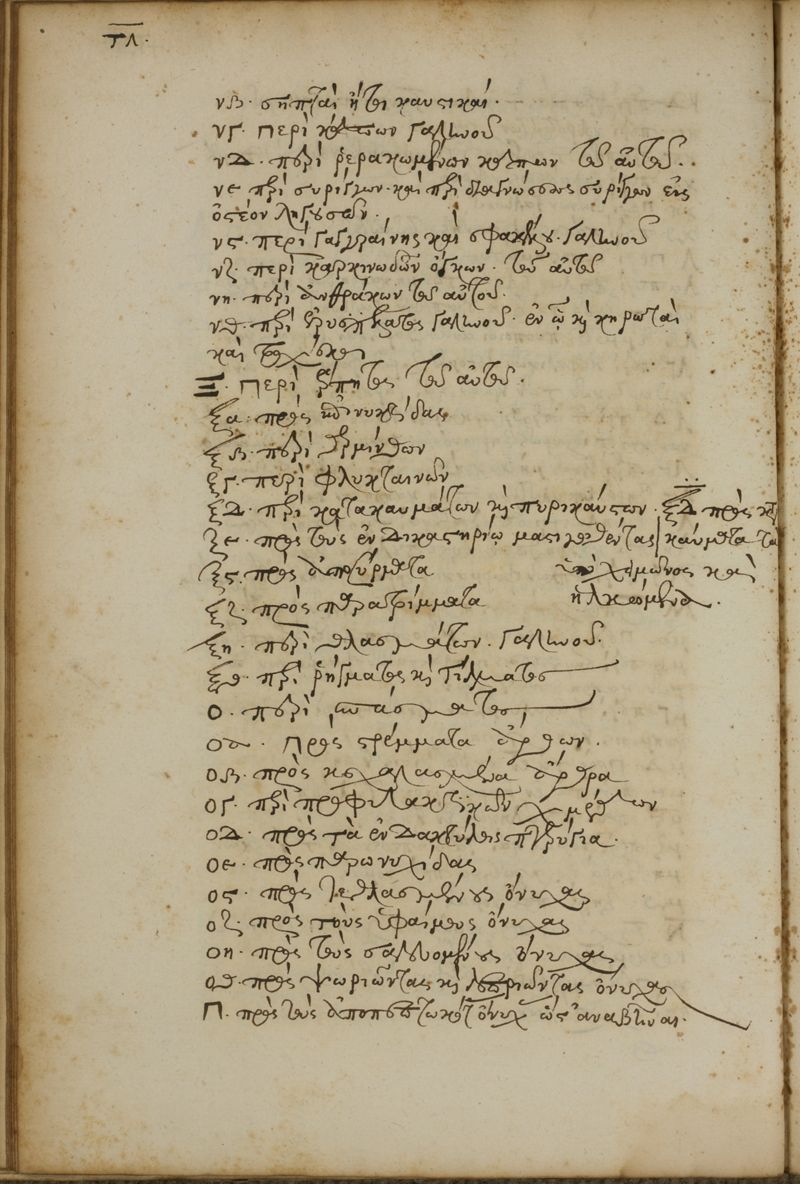 τλ.
νβ. σηπταὶ ἤτοι καυστικαί.
νγ. Περὶ κόλπων Γαληνοῦ
νδ. περὶ κόλπων τοῦ αὐτοῦ.
νε. περὶ συρίγγων. καὶ περὶ διαγνώσεως συρίγγων εἰς
ὀστέον ληγουσῶν.
νς. περὶ γαγγραίνης καὶ σφακέλου. Γαληνοῦ
νζ. περὶ καρκινωδῶν ὄγκων. τοῦ αὐτοῦ
νη. περὶ ἀνθράκων τοῦ αὐτοῦ.
νθ. περὶ ἐρυσιπέλατος Γαληνοῦ. ἐν ᾧ καὶ κηρωταὶ
καὶ τροχίσκοι
ξ. Περὶ ἕρπητος τοῦ αὐτοῦ.
ξα. πρὸς ἐπινυκτίδας
ξβ. περὶ τερμίνθων
ξγ. περὶ φλυκταινῶν
ξδ. περὶ κατακαυμάτων καὶ πυρικαύτων. ξδ πρὸς
ξε. πρὸς τοὺς ἐν δικαστηρίῳ μαστιγωθέντας καύματα τὰ
ξς. πρὸς ἀποσύρματα ὑπὸ χειμῶνος καὶ
ξζ. πρὸς παρατρίμματα ἡλκωμένα.
ξη. περὶ θλασμάτων. Γαληνοῦ.
ξθ. περὶ ῥήγματος καὶ τίλματος
ο. περὶ σπάσματος
οα. Πρὸς στρέμματα ἄρθρων.
οβ. πρὸς κεχαλασμένα ἄρθρα
ογ. περὶ προφυλακτικῶν χιμέθλων
οδ. πρὸς τὰ ἐν δακτύλοις πτερύγια.
οε. πρὸς παρωνυχίδας
ος. πρὸς τεθλασμένους ὄνυχας
οζ. πρὸς τοὺς ὑφαίμους ὄνυχας
οη. πρὸς τοὺς σαλευομένους ὄνυχας
οθ. πρὸς ψωριῶντας καὶ λεπριῶντας ὄνυχας
π. πρὸς τοὺς ἀποπεπτωκότας ὄνυχας ὡς ἀναβῆναι.